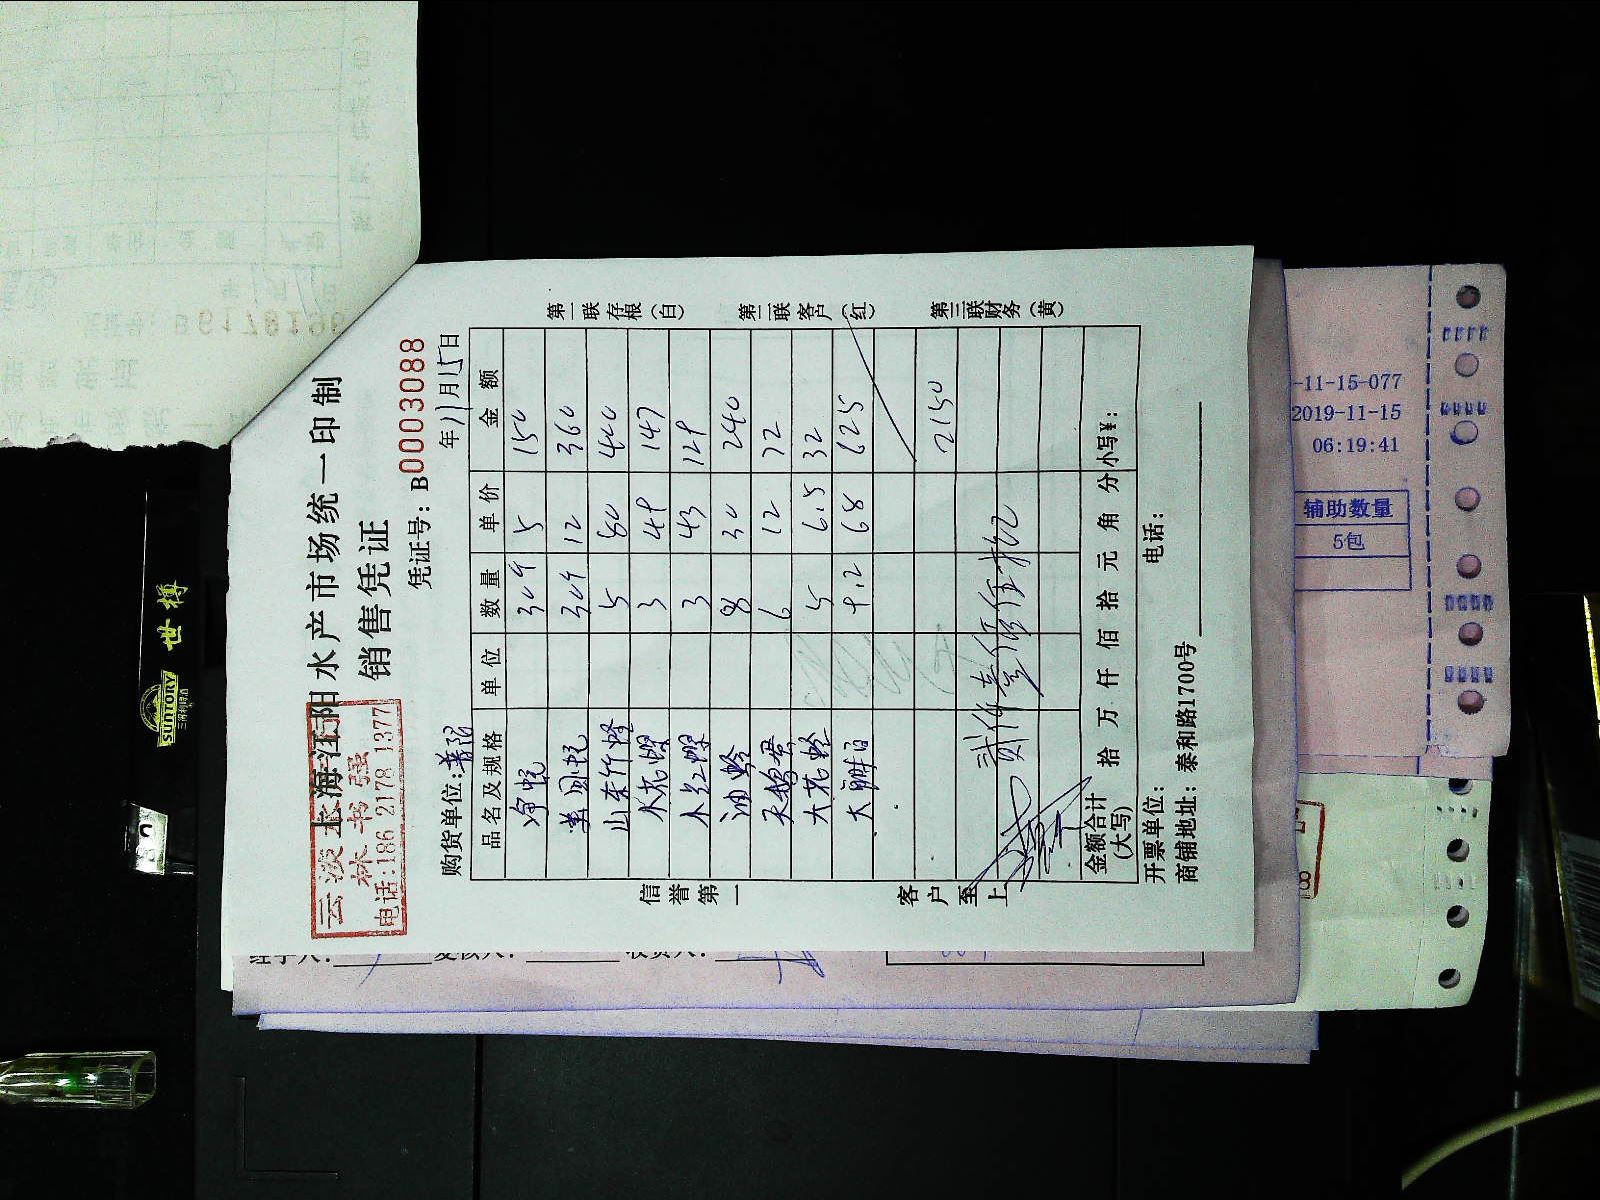 上海江阳水产市场统一印制
销售凭证
云淡水
林书强
电话:186 2178 1377
凭证号: B0003088
购货单位: 年11月15日
品名及规格 单位 数量 单价 金额
净蚬 5 150
12 360
山东竹蛏 5 80 400
水花螺 3 49 147
3 43 129
油蛤 8 30 240
6 12 72
大花蛤 5 6.5 32
68 625
2150
金额合计(大写) 拾 万 仟 佰 拾 元 角 分 小写¥:
开票单位: 电话:
商铺地址: 泰和路1700号
信誉第一
客户至上
第一联存根(白)
第二联客户(红)
第三联财务(黄)
-11-15-077
2019-11-15
06:19:41
辅助数量
5包
SUNTORY
三得利啤酒